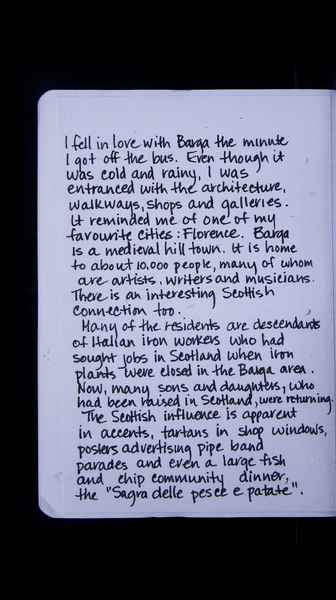 I fell in love with Barga the minute
I got off the bus. Even though it
was cold and rainy, I was
entranced with the architecture,
walkways, shops and galleries.
It reminded me of one of my
favourite cities: Florence. Barga
is a medieval hill town. It is home
to about 10,000 people, many of whom
are artists, writers and musicians.
There is an interesting Scottish
connection too.
Many of the residents are descendants
of Italian iron workers who had
sought jobs in Scotland when iron
plants were closed in the Barga area.
Now, many sons and daughters, who
had been raised in Scotland, were returning.
The Scottish influence is apparent
in accents, tartans in shop windows,
posters advertising pipe band
parades and even a large fish
and chip community dinner,
the "Sagra delle pesce e patate".